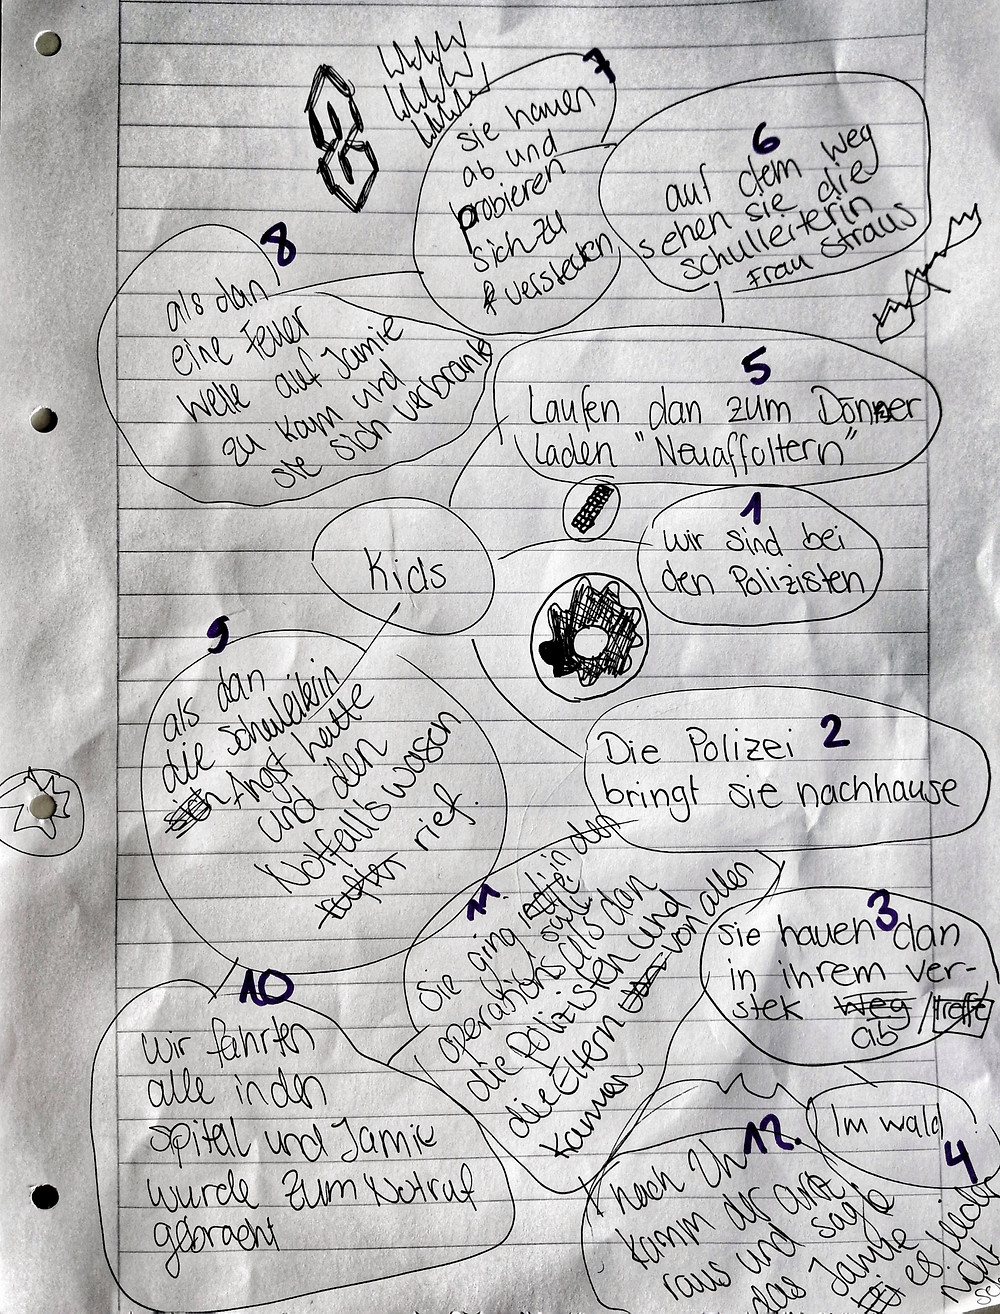 7
sie hauen
ab und
probieren
sich zu
verstecken
6
auf dem Weg
sehen sie die
schulleiterin
Frau Straus
8
als dan
eine Feuer
welle auf Jamie
zu kam und
sie sich verbrante
5
Laufen dan zum Dönner
laden "Neuaffoltern"
1
wir sind bei
den Polizisten
Kids
9
als dan
die Schuleiterin
sich Angst hatte
und den
Notfallswagen
rief.
2
Die Polizei
bringt sie nachhause
3
Sie hauen dan
in ihrem ver-
stek weg / treffe
ab
Im wald
4
10
wir fahrten
alle in den
spital und Jamie
wurde zum Notruf
gebracht
11.
Sie ging in den
operations sale
als dan
die Polizisten und
die Eltern von allen
kammen
12.
nach
kamm der arzt
raus und sagte
das Jamie
es leider
nicht